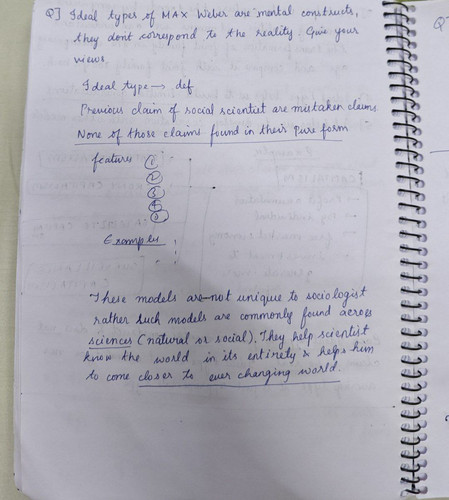 Q] Ideal types of MAX Weber are mental constructs,
they dont correspond to the reality. Give your
views.
Ideal type → def
Previous claim of social scientist are mistaken claims
None of those claims found in their pure form
features ①
②
③
④
⑤
Examples
These models are not unique to sociologist
rather such models are commonly found across
sciences (natural or social). They help scientist
know the world in its entirety & helps him
to come closer to ever changing world.